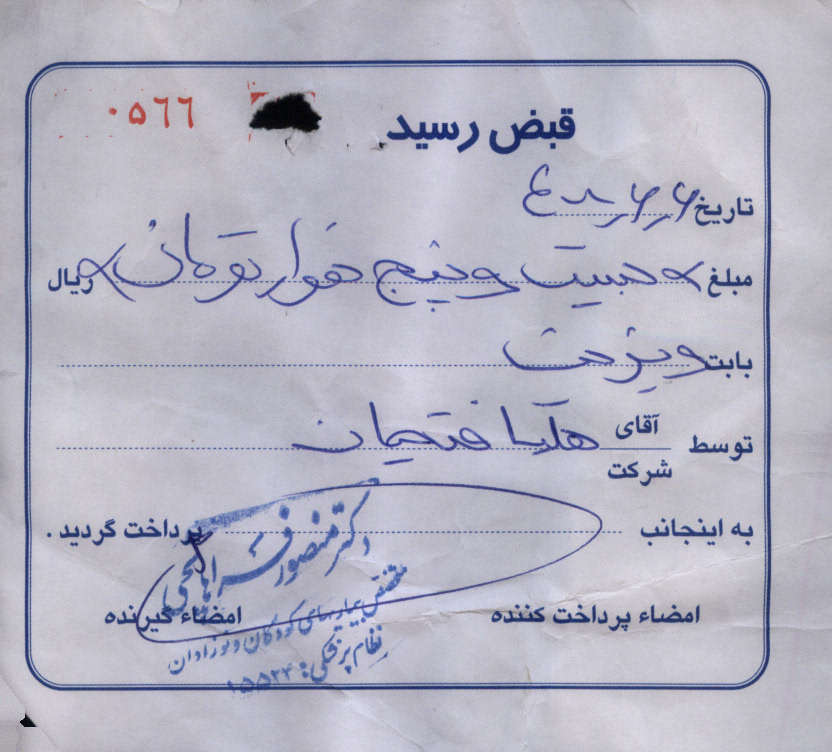 ۰۵٦٦
قبض رسید
تاریخ
مبلغ بیست و پنج هزار تومان ریال
بابت ویزیت
توسط آقای
شرکت
به اینجانب پرداخت گردید .
امضاء پرداخت کننده امضاء گیرنده
دکتر منصور
متخصص بیماریهای کودکان و نوزادان
نظام پزشکی: ۱۵۵۲۴